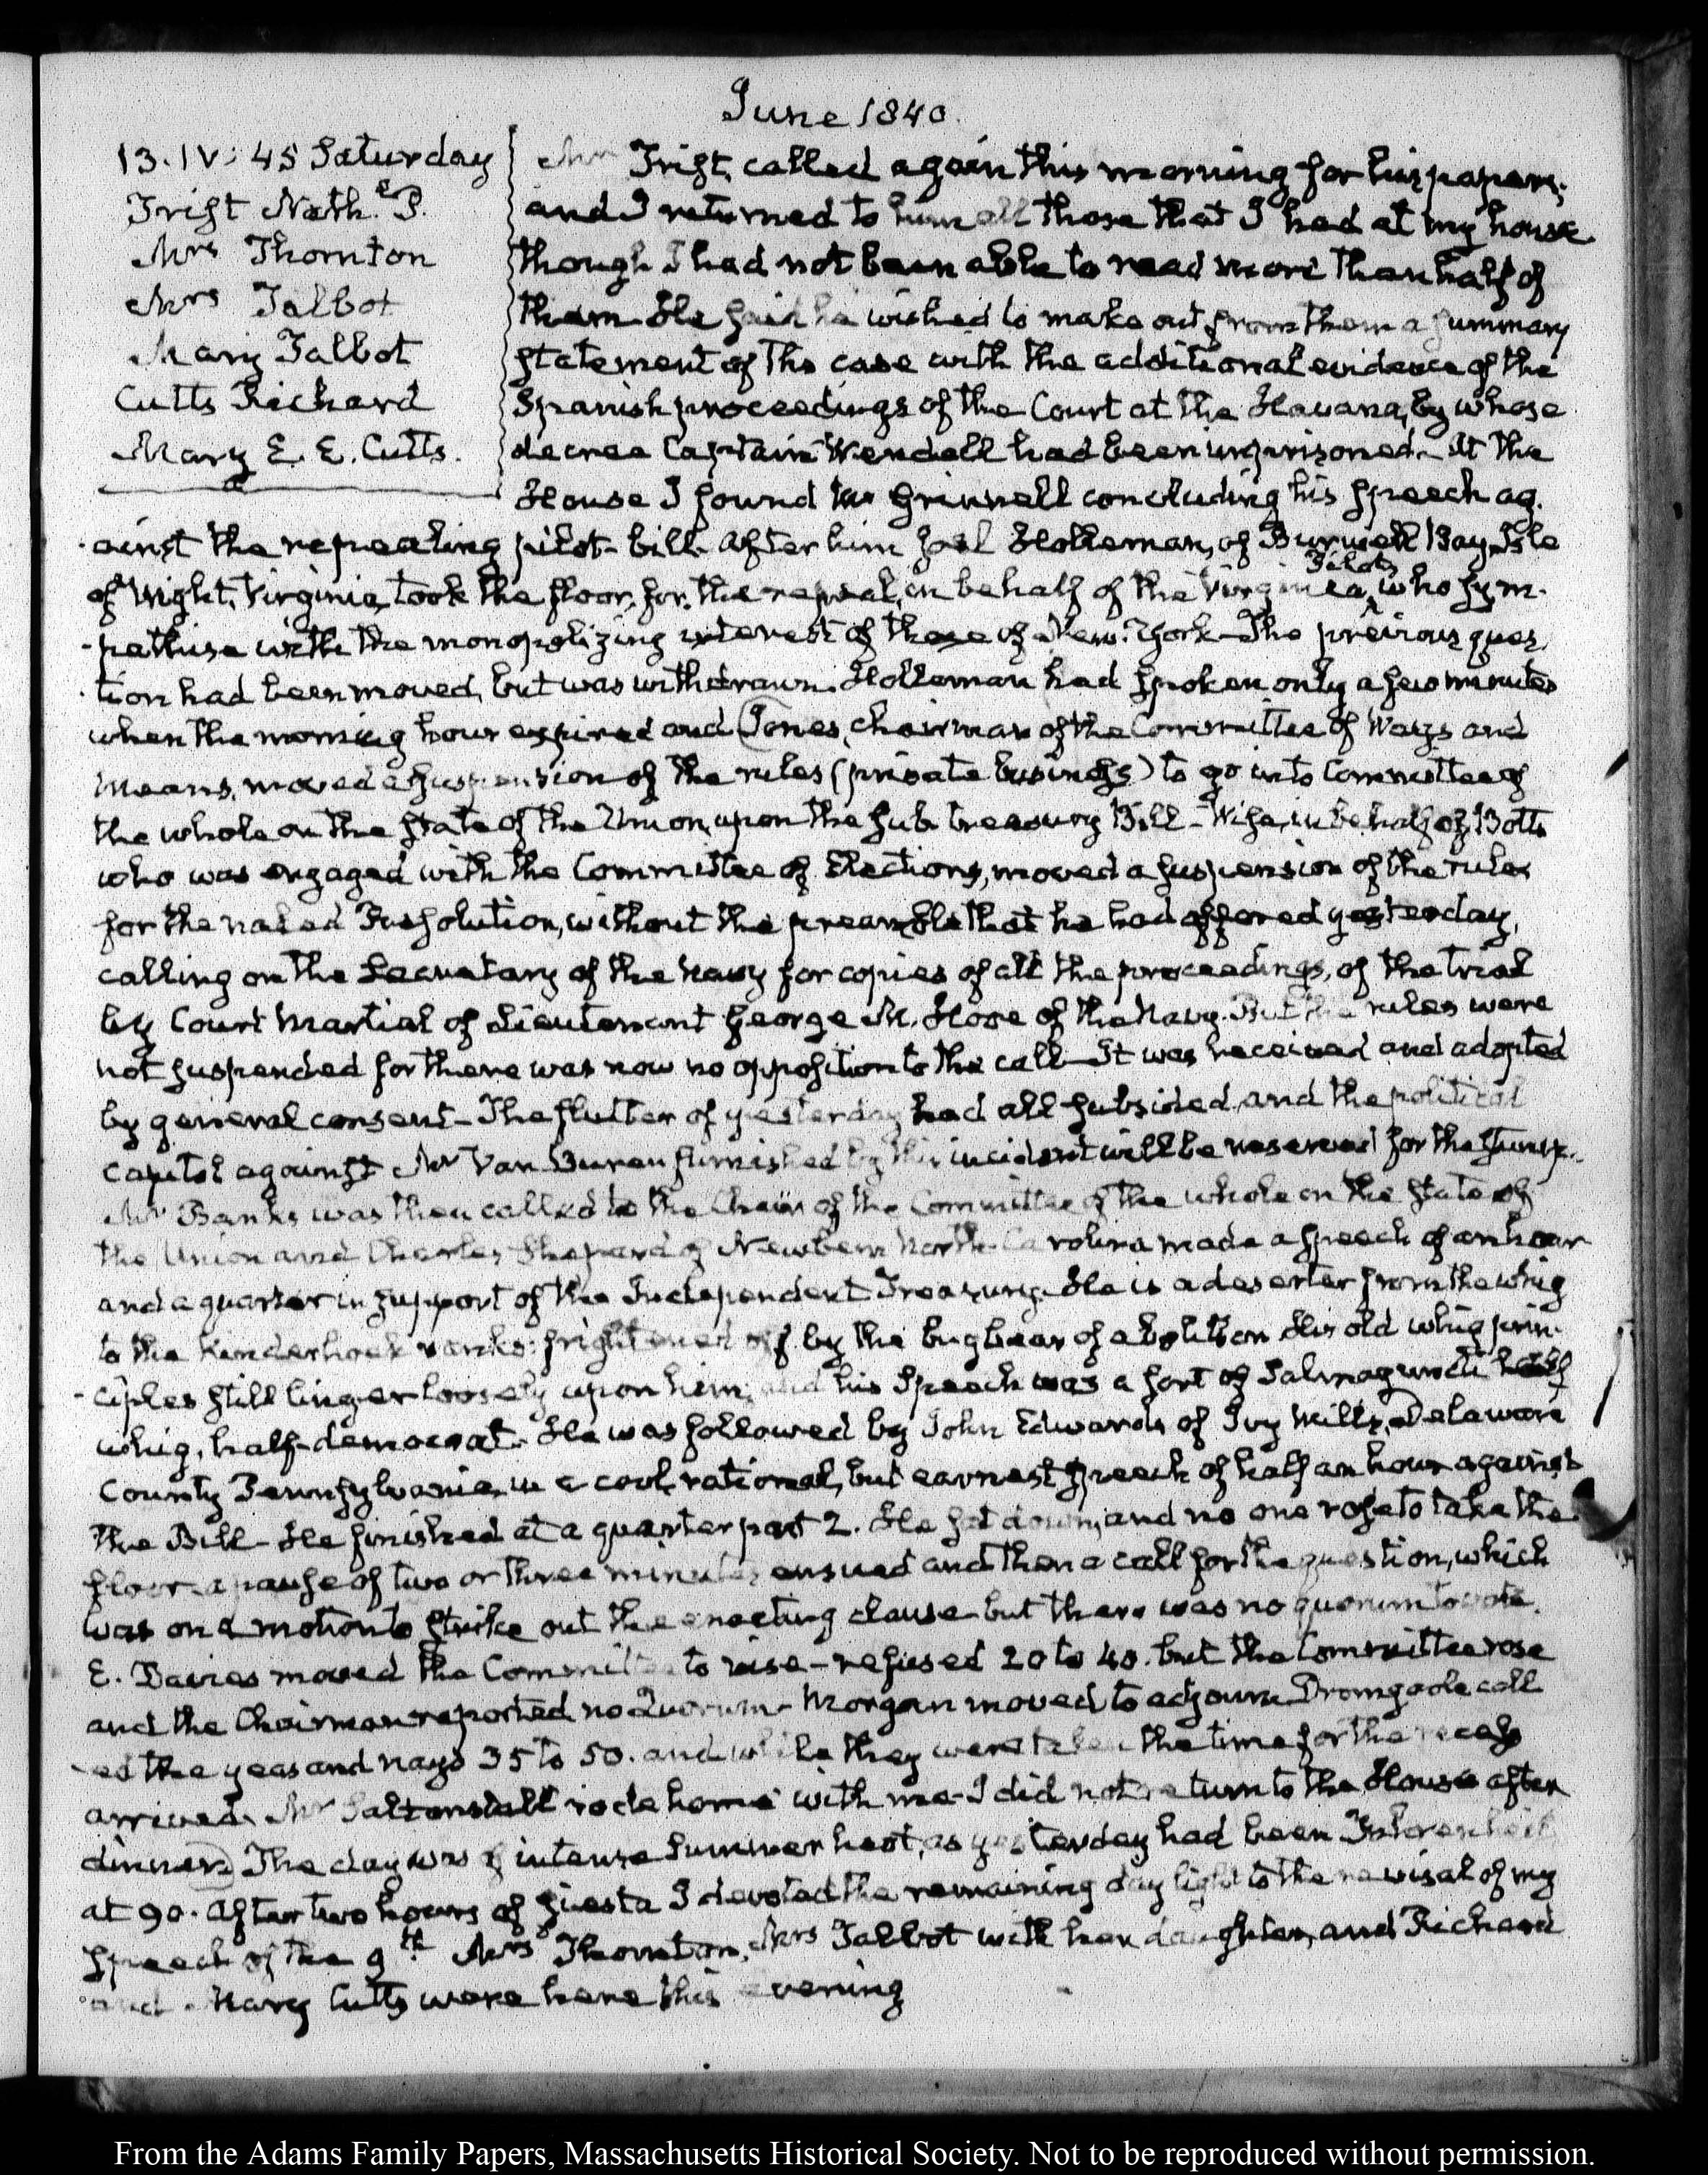 June 1840.
13. IV: 45 Saturday
Trist Nathl. P.
Mrs Thornton
Mrs Talbot
Mary Talbot
Cutts Richard
Mary E. E. Cutts.
Mr Trist called again this morning for his papers;
and I returned to him all those that I had at my house
though I had not been able to read more than half of
them. He said he wished to make out from them a summary
statement of the case with the additional evidence of the
Spanish proceedings of the Court at the Havana, by whose
decree Captain Wendell had been imprisoned. At the
House I found Mr Grinnell concluding his speech ag-
ainst the repealing pilot-bill. After him Joel Holleman, of Burwell Bay, Isle
of Wight, Virginia, took the floor, for the repeal, in behalf of the Virginia Pilots, who sym-
-pathise with the monopolizing interest of those of New-York—The previous ques-
-tion had been moved, but was withdrawn. Holleman had spoken only a few minutes
when the morning hour expired and Jones, chairman of the Committee of Ways and
Means, moved a suspension of the rules (private business) to go into Committee of
the whole on the state of the Union, upon the sub treasury Bill—Wise, in behalf of Botts
who was engaged with the Committee of Elections, moved a suspension of the rules
for the naked Resolution, without the preamble that he had offered yesterday,
calling on the Secretary of the Navy for copies of all the proceedings, of the trial
by Court Martial of Lieutenant George M. Hooe of the Navy. But the rules were
not suspended for there was now no opposition to the call—It was received and adopted
by general consent—The flutter of yesterday had all subsided, and the political
capital against Mr Van Buren furnished by this incident will be reserved for the stump.
Mr Banks was then called to the Chair of the Committee of the whole on the state of
the Union and Charles Shepard of Newbern North-Carolina made a speech of an hour
and a quarter in support of the Independent Treasury. He is a deserter from the whig
to the Kinderhook ranks: frightened off by the bugbear of abolition. His old whig prin-
-ciples still linger loosely upon him, and his speech was a sort of Salmagundi half
whig, half-democrat. He was followed by John Edwards of Ivy Mills, Delaware
County Pennsylvania, in a cool, rational, but earnest speech of half an hour against
the Bill—He finished at a quarter past 2. He sat down, and no one rose to take the
floor. a pause of two or three minutes ensued and then a call for the question, which
was on a motion to strike out the enacting clause—but there was no quorum to vote.
E. Davies moved the Committee to rise—refused 20 to 40. but the Committee rose
and the Chairman reported no Quorum—Morgan moved to adjourn Dromgoole call
-ed the yeas and nays 35 to 50. and while they were taken the time for the recess
arrived. Mr Saltonstall rode home with me—I did not return to the House after
dinner. The day was of intense Summer heat, as yesterday had been Fahrenheit
at 90. After two hours of siesta I devoted the remaining day light to the revisal of my
speech of the 9th. Mrs Thornton, Mrs Talbot with her daughter, and Richard
and Mary Cutts were here this evening
From the Adams Family Papers, Massachusetts Historical Society. Not to be reproduced without permission.